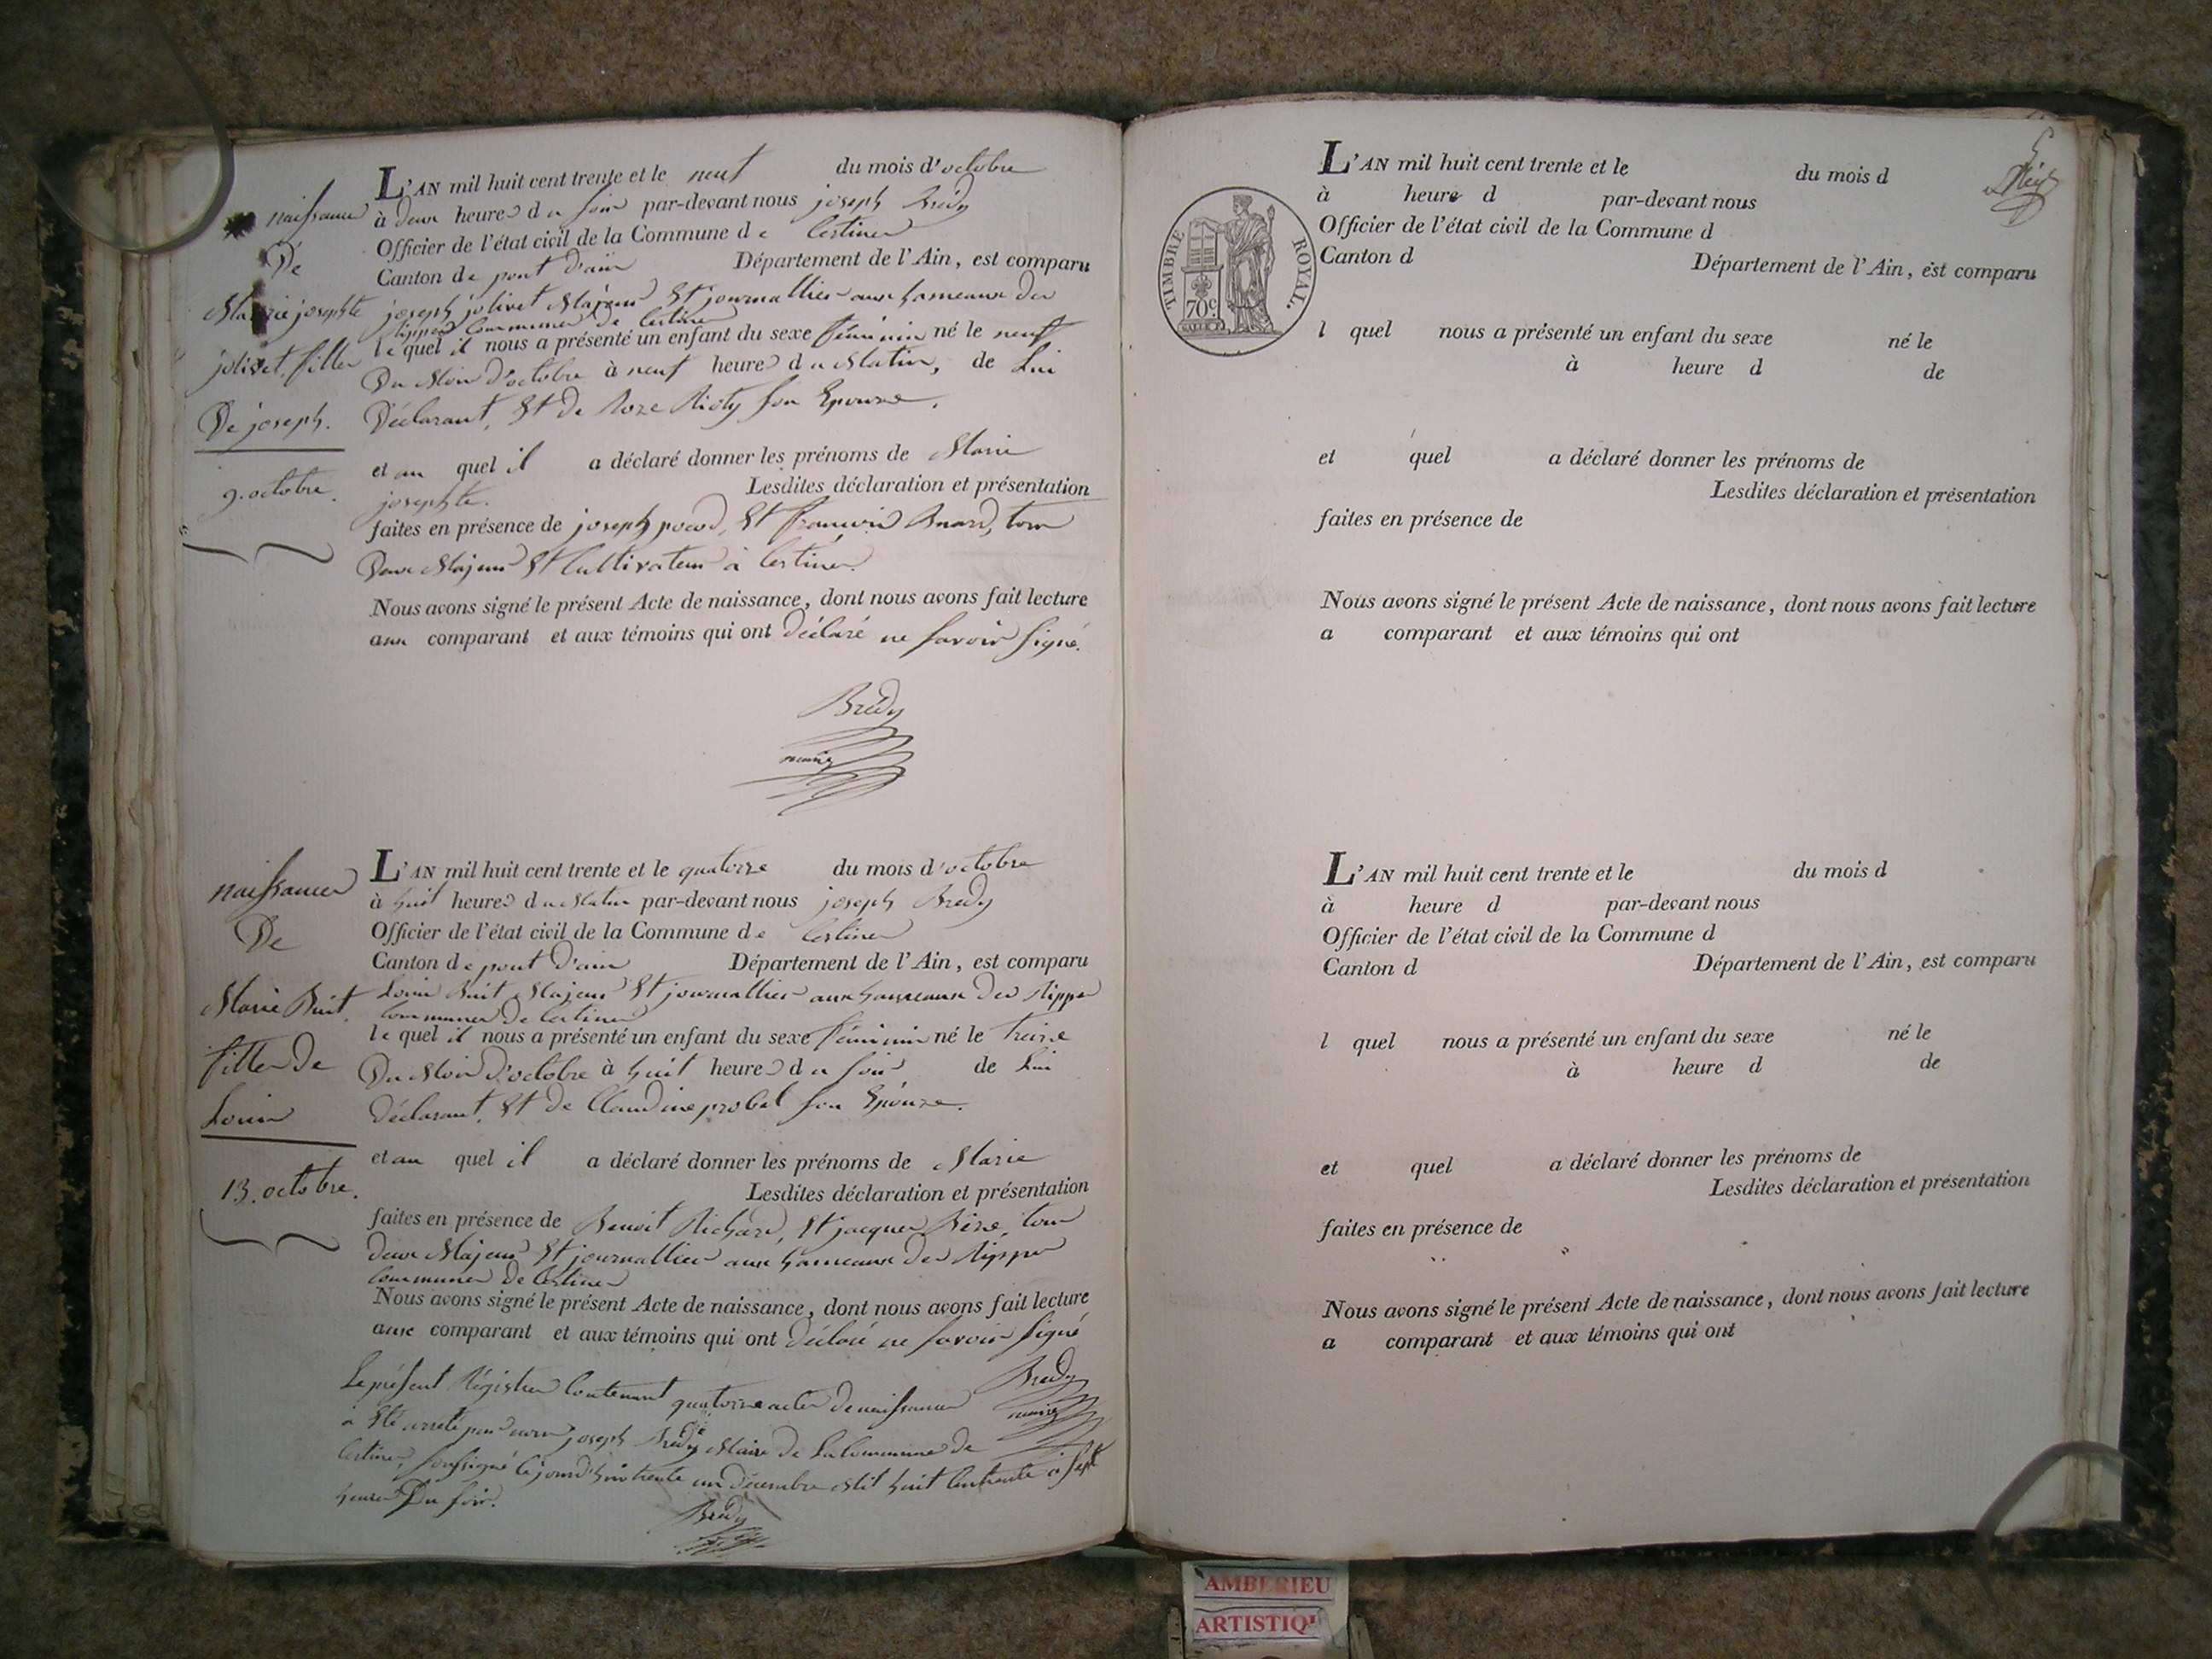 naissance
De
Marie josephte
jolivet. fille
De joseph.
9. octobre.
L'AN mil huit cent trente et le neuf du mois d'octobre
à deux heures du soir par-devant nous joseph Brédy
Officier de l'état civil de la Commune de Certines
Canton de pont d'ain Département de l'Ain, est comparu
joseph jolivet Majeur Et journallier aux hameaux des
rippes Communes de Certines
lequel il nous a présenté un enfant du sexe féminin né le neuf
Du Mois D'octobre à neuf heures du Matin, de Lui
Déclarant, Et de Roze son Epouze.
et au quel il a déclaré donner les prénoms de Marie
josephte. Lesdites déclaration et présentation
faites en présence de joseph Et françois tous
Deux Majeurs Et Cultivateurs à Certines.
Nous avons signé le présent Acte de naissance, dont nous avons fait lecture
aux comparant et aux témoins qui ont Déclaré ne savoir signé.
Brédy
maire
naissance
De
Marie Buit.
fille De
Louis
13. octobre.
L'AN mil huit cent trente et le quatorze du mois d'octobre
à huit heures du Matin par-devant nous joseph Brédy
Officier de l'état civil de la Commune de Certines
Canton de pont D'ain Département de l'Ain, est comparu
Louis Buit Majeur Et journallier aux hameaux Des rippes
Communes De Certines
lequel il nous a présenté un enfant du sexe féminin né le treize
Du Mois D'octobre à huit heures du soir de Lui
Déclarant, Et De Claudine probel son Epouze.
et au quel il a déclaré donner les prénoms de Marie
Lesdites déclaration et présentation
faites en présence de Benoit Richard, Et jacques tous
deux Majeurs Et journallier aux hameaux Des Rippes
Communes De Certines
Nous avons signé le présent Acte de naissance, dont nous avons fait lecture
aux comparant et aux témoins qui ont Déclaré ne savoir signé
Brédy
maire
Le présent Régistre Contenant quatorze actes De naissances
a Eté arreté par nous joseph Brédy Maire De La Commune De
Certines, soussigné cejourd'hui trente un décembre Mil huit Cent trente à sept
heures Du soir.
Brédy
TIMBRE ROYAL.
70c
L'AN mil huit cent trente et le du mois d
à heure d par-devant nous
Officier de l'état civil de la Commune d
Canton d Département de l'Ain, est comparu
l quel nous a présenté un enfant du sexe né le
à heure d de
et quel a déclaré donner les prénoms de
Lesdites déclaration et présentation
faites en présence de
Nous avons signé le présent Acte de naissance, dont nous avons fait lecture
a comparant et aux témoins qui ont
L'AN mil huit cent trente et le du mois d
à heure d par-devant nous
Officier de l'état civil de la Commune d
Canton d Département de l'Ain, est comparu
l quel nous a présenté un enfant du sexe né le
à heure d de
et quel a déclaré donner les prénoms de
Lesdites déclaration et présentation
faites en présence de
Nous avons signé le présent Acte de naissance, dont nous avons fait lecture
a comparant et aux témoins qui ont
AMBERIEU
ARTISTIQ